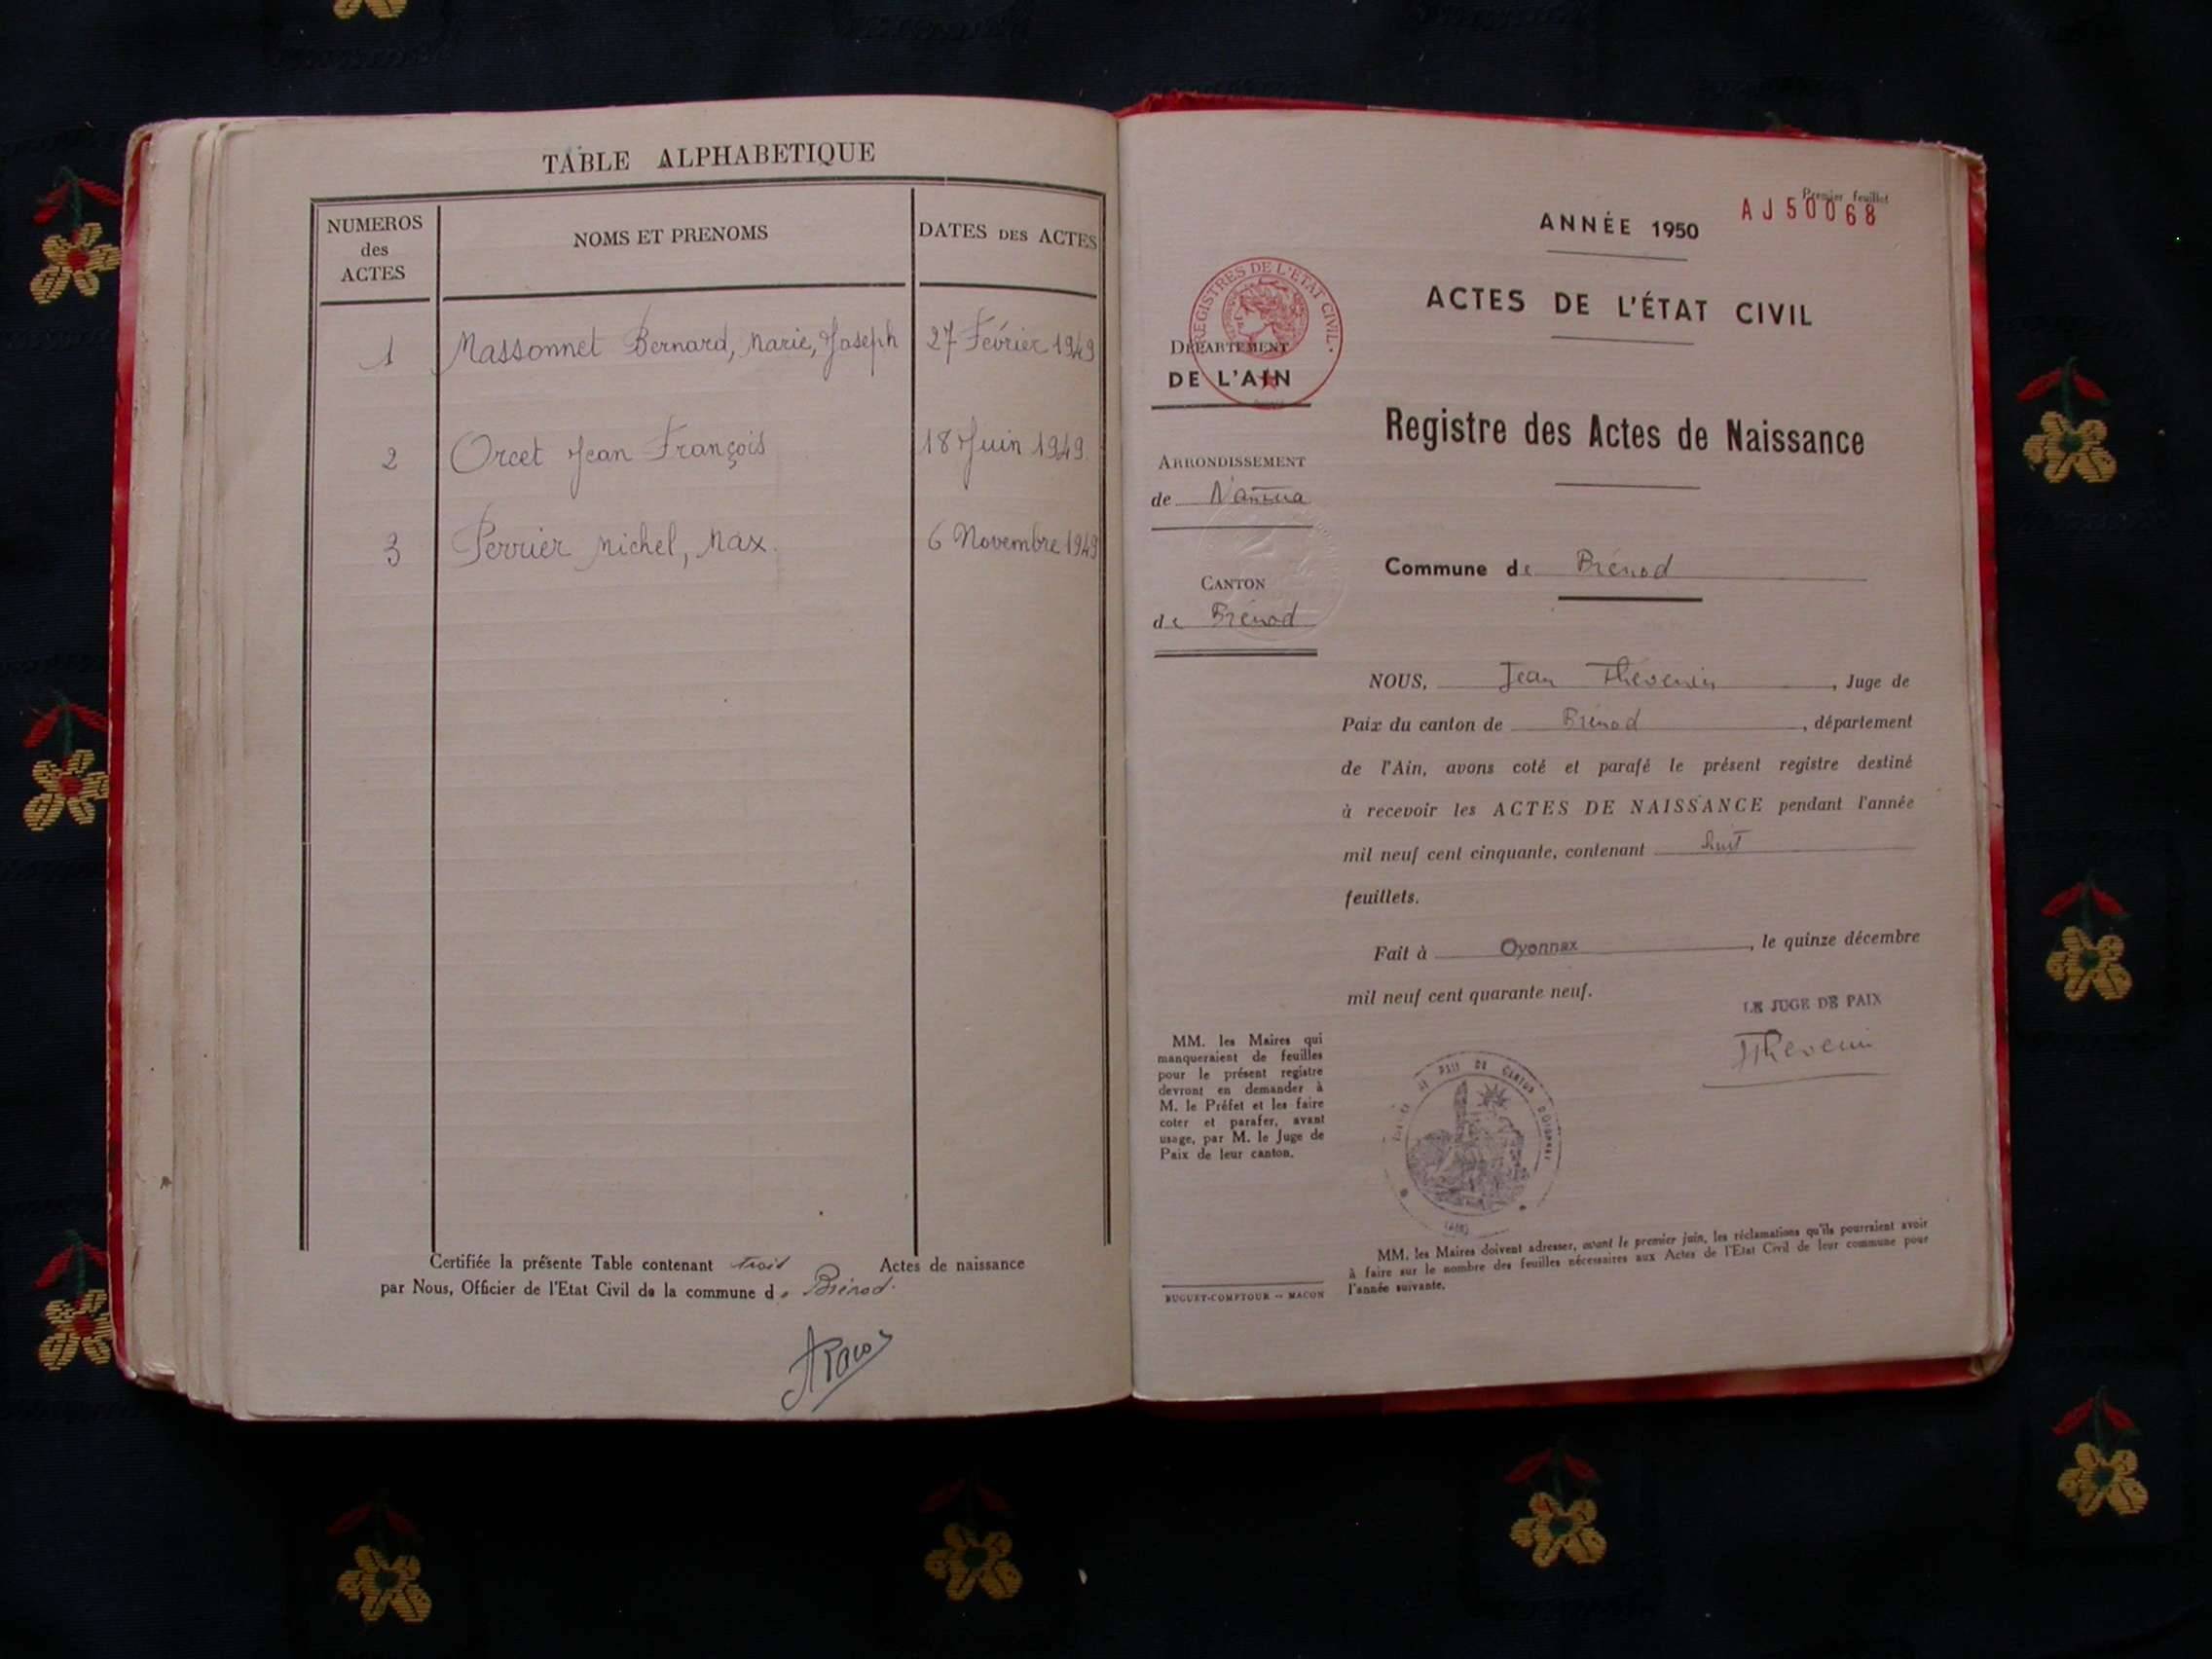 TABLE ALPHABETIQUE
NUMEROS
des
ACTES
NOMS ET PRENOMS
DATES DES ACTES
1 Massonnet Bernard, Marie, Joseph 27 Février 1949
2 Orcet Jean François 18 Juin 1949
3 Perrier Michel, Max. 6 Novembre 1949
Certifiée la présente Table contenant trois Actes de naissance
par Nous, Officier de l'Etat Civil de la commune de Brénod.
Premier feuillet
AJ50068
ANNÉE 1950
ACTES DE L'ÉTAT CIVIL
REGISTRES DE L'ETAT CIVIL
DÉPARTEMENT
DE L'AIN
Registre des Actes de Naissance
ARRONDISSEMENT
de Nantua
Commune de Brénod
CANTON
de Brénod
NOUS, Jean Thévenin, Juge de
Paix du canton de Brénod, département
de l'Ain, avons coté et parafé le présent registre destiné
à recevoir les ACTES DE NAISSANCE pendant l'année
mil neuf cent cinquante, contenant huit
feuillets.
Fait à Oyonnax, le quinze décembre
mil neuf cent quarante neuf.
LE JUGE DE PAIX
Thevenin
MM. les Maires qui
manqueraient de feuilles
pour le présent registre
devront en demander à
M. le Préfet et les faire
coter et parafer, avant
usage, par M. le Juge de
Paix de leur canton.
(AIN)
MM. les Maires doivent adresser, avant le premier juin, les réclamations qu'ils pourraient avoir
à faire sur le nombre des feuilles nécessaires aux Actes de l'Etat Civil de leur commune pour
l'année suivante.
BUGUET-COMPTOUR -- MACON